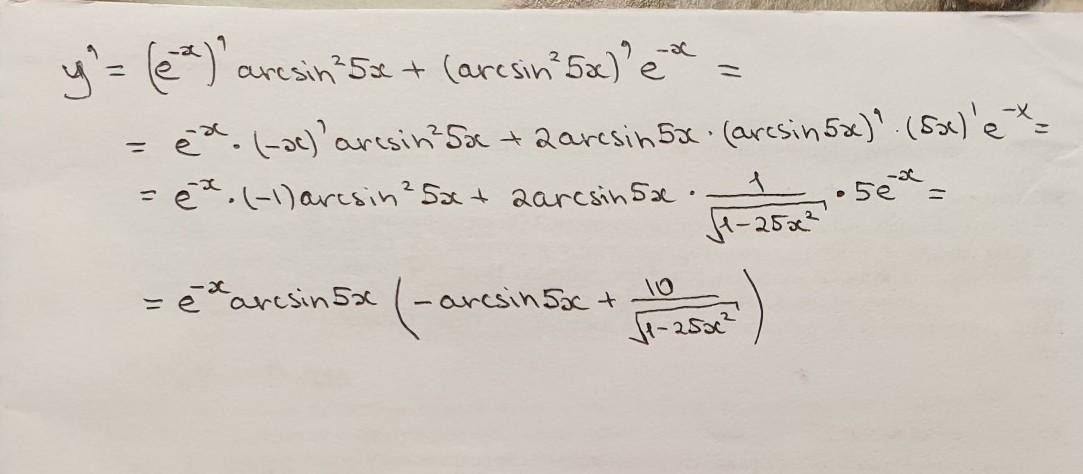 y' = (e^{-x})' arcsin²5x + (arcsin²5x)' e^{-x} =
= e^{-x} · (-x)' arcsin²5x + 2arcsin5x · (arcsin5x)' · (5x)' e^{-x} =
= e^{-x} · (-1)arcsin²5x + 2arcsin5x · \frac{1}{\sqrt{1-25x²}} · 5e^{-x} =
= e^{-x}arcsin5x (-arcsin5x + \frac{10}{\sqrt{1-25x²}})